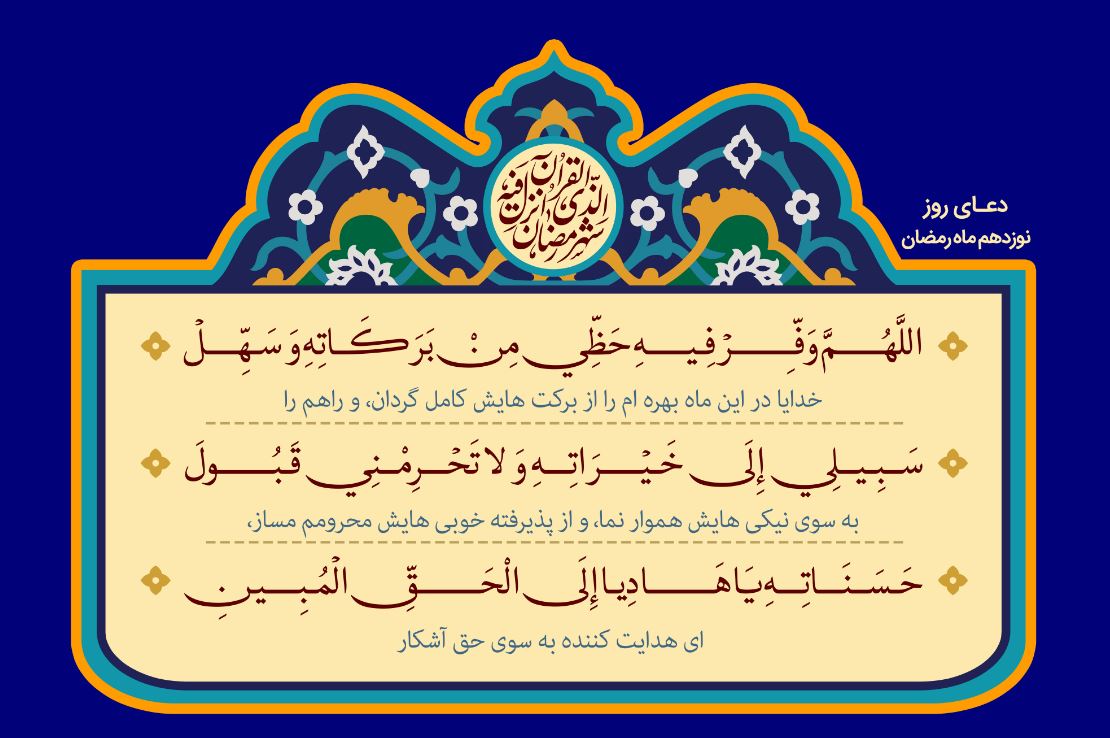 شهر رمضان
الذي أنزل فيه القرآن
دعای روز
نوزدهم ماه رمضان
اللَّهُمَّ وَفِّرْ فِيهِ حَظِّي مِنْ بَرَكَاتِهِ وَ سَهِّلْ
خدایا در این ماه بهره ام را از برکت هایش کامل گردان، و راهم را
سَبِيلِي إِلَى خَيْرَاتِهِ وَ لا تَحْرِمْنِي قَبُولَ
به سوی نیکی هایش هموار نما، و از پذیرفته خوبی هایش محرومم مساز،
حَسَنَاتِهِ يَا هَادِيا إِلَى الْحَقِّ الْمُبِينِ
ای هدایت کننده به سوی حق آشکار